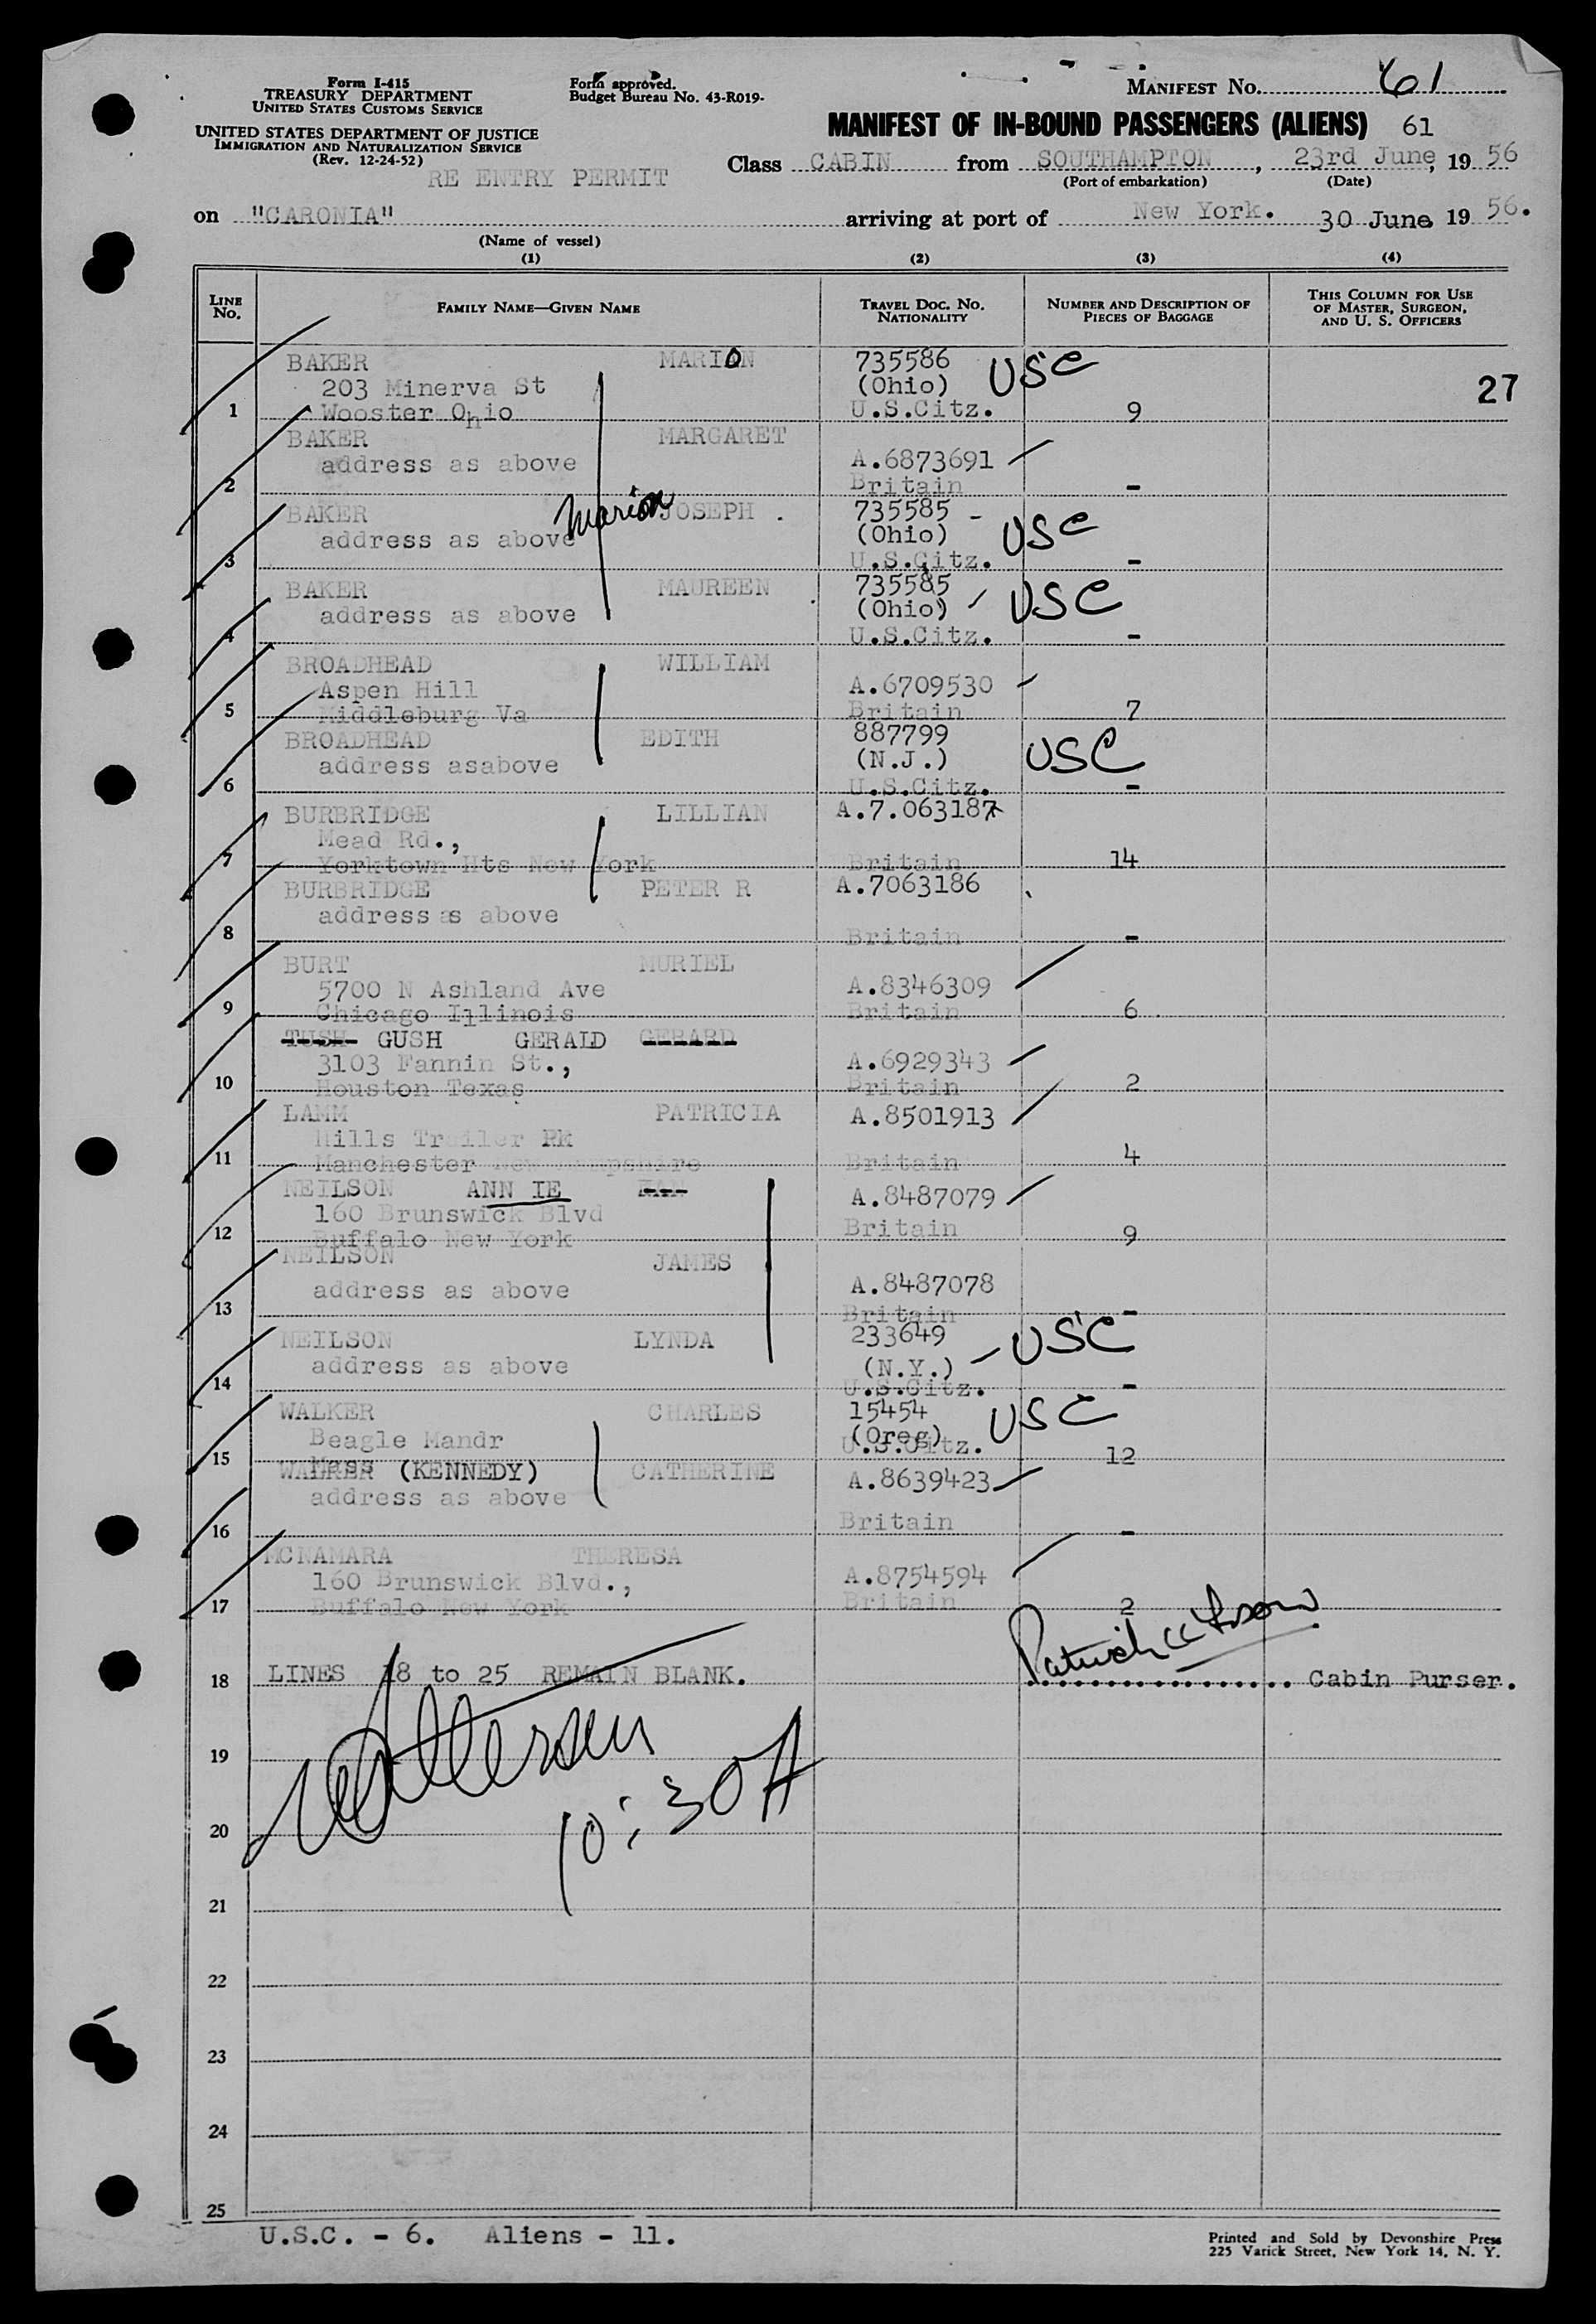 Form I-415
TREASURY DEPARTMENT
UNITED STATES CUSTOMS SERVICE
Form approved.
Budget Bureau No. 43-R019-
MANIFEST NO. 61
UNITED STATES DEPARTMENT OF JUSTICE
IMMIGRATION AND NATURALIZATION SERVICE
(Rev. 12-24-52)
RE ENTRY PERMIT
MANIFEST OF IN-BOUND PASSENGERS (ALIENS) 61
Class CABIN from SOUTHAMPTON, 23rd June, 19 56
(Port of embarkation) (Date)
on "CARONIA" arriving at port of New York. 30 June 19 56.
(Name of vessel)
(1) (2) (3) (4)
LINE NO.
FAMILY NAME—GIVEN NAME
TRAVEL DOC. NO. NATIONALITY
NUMBER AND DESCRIPTION OF PIECES OF BAGGAGE
THIS COLUMN FOR USE OF MASTER, SURGEON, AND U. S. OFFICERS
BAKER MARION 735586 USC
203 Minerva St (Ohio) 27
1 Wooster Ohio U.S.Citz. 9
BAKER MARGARET
address as above A.6873691
2 Britain -
BAKER Marion JOSEPH . 735585 -
address as above (Ohio) USC
3 U.S.Citz. -
BAKER MAUREEN 735585
address as above (Ohio) USC
4 U.S.Citz. -
BROADHEAD WILLIAM
Aspen Hill A.6709530
5 Middleburg Va Britain 7
BROADHEAD EDITH 887799
address asabove (N.J.) USC
6 U.S.Citz. -
BURBRIDGE LILLIAN A.7.063187
Mead Rd.,
7 Yorktown Hts New York Britain 14
BURBRIDGE PETER R A.7063186
address as above
8 Britain -
BURT MURIEL
5700 N Ashland Ave A.8346309
9 Chicago Illinois Britain 6
TUSH GUSH GERALD GERARD
3103 Fannin St., A.6929343
10 Houston Texas Britain 2
LAMM PATRICIA A.8501913
Hills Trailer PK
11 Manchester New Hampshire Britain 4
NEILSON ANN IE A.8487079
160 Brunswick Blvd
12 Buffalo New York Britain 9
NEILSON JAMES
address as above A.8487078
13 Britain -
NEILSON LYNDA 233649 USC
address as above (N.Y.)
14 U.S.Citz. -
WALKER CHARLES 15454 USC
Beagle Mandr (Oreg)
15 Mass U.S.Citz. 12
WALKER (KENNEDY) CATHERINE A.8639423
address as above
16 Britain -
MCNAMARA THERESA
160 Brunswick Blvd., A.8754594
17 Buffalo New York Britain 2
18 LINES 18 to 25 REMAIN BLANK. Cabin Purser.
19
10:30A
20
21
22
23
24
25
U.S.C. - 6. Aliens - 11.
Printed and Sold by Devonshire Press
225 Varick Street, New York 14, N. Y.